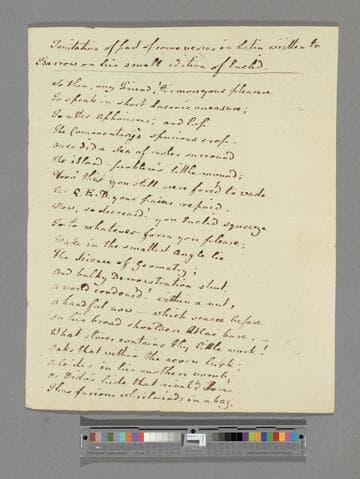 Imitation of part of some verses in Latin written to
Barrow on his small edition of Euclid.
So then, my Friend! tis now your pleasure
To speak in short laconic measure;
To utter Aphorisms; and lop
The Commentary's spurious crop.
Once did a Sea of notes surround
The island-problem's little mound;
Thro' this you still were forc'd to wade
Ere Q.E.D. your pains repaid.
Now, so decreed! you Euclid squeeze
Into whatever form you please;
Make in the smallest Angle lie
The Science of Geometry;
And bulky Demonstration shut,
A world condens'd! within a nut,
A handful now — which scarce before
On his broad shoulders Atlas bore.
What stores contains thy little work!
Oaks that within the acorn lurk;
Alcides in his mother's womb;
Or Dido's hide that rival'd Rome.
Thus furious whirlwinds in a bag,